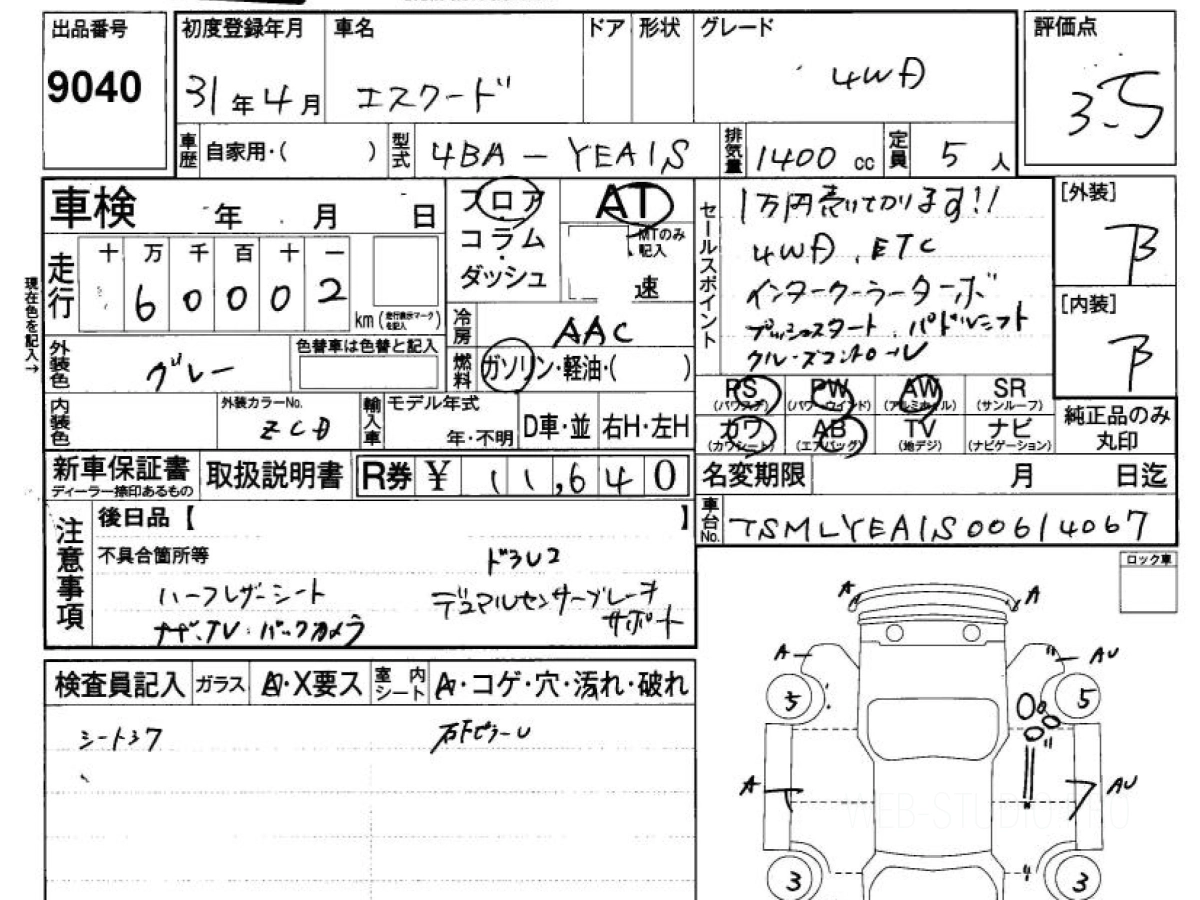 出品番号 初度登録年月 車名 ドア 形状 グレード 評価点
9040 31年4月 エスクード 4WD 3.5
車歴 自家用・( ) 型式 4BA-YEA1S 排気量 1400cc 定員 5人
車検 年 月 日
フロア
コラム
ダッシュ
AT
MTのみ記入
速
セールスポイント
1万円売けてかります!!
4WD、ETC
インタークーラーターボ
プッシュスタート、パドルシフト
クルーズコントロール
[外装]
B
[内装]
B
現在色を記入→
走行 十 万 千 百 十 一
6 0 0 0 2 km (走行表示マークを記入)
冷房 AAC
燃料 ガソリン・軽油・( )
外装色 グレー 色替車は色替と記入
内装色 外装カラーNo. ZCD
輸入車 モデル年式 年・不明 D車・並 右H・左H
PS (パワステ) PW (パワーウインド) AW (アルミホイル) SR (サンルーフ)
カワ (カワシート) AB (エアバッグ) TV (地デジ) ナビ (ナビゲーション)
純正品のみ
丸印
新車保証書 ディーラー捺印あるもの 取扱説明書 R券 ¥ 11,640
名変期限 月 日迄
車台No. TSMLYEA1S00614067
注意事項
後日品【 】
不具合箇所等 ドラレコ
ハーフレザーシート デュアルセンサーブレーキ
ナビ、TV・バックカメラ サポート
ロック車
検査員記入 ガラス A・X要ス 室内シート A・コゲ・穴・汚れ・破れ
シートスレ
A A
A AU
5 5
A AU
3 3
WEB-STUDIO.PRO